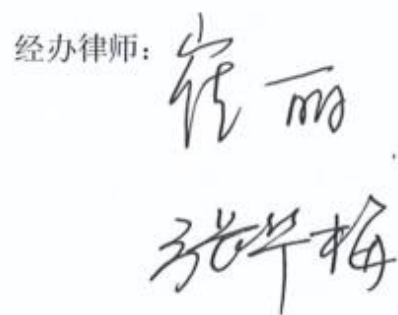 经办律师：崔丽
张华梅